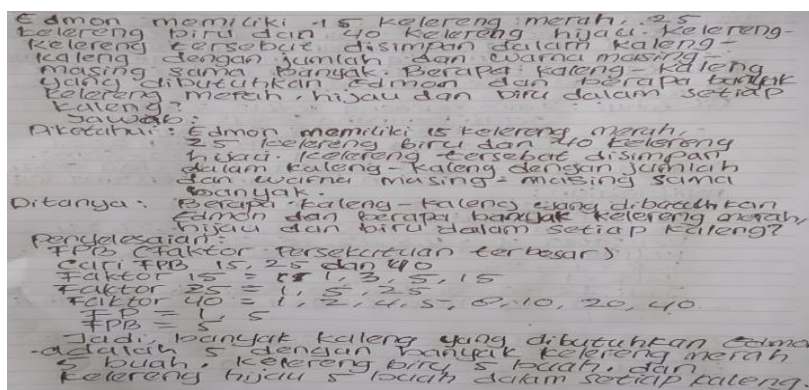 Edmon memiliki 15 kelereng merah, 25
kelereng biru dan 40 kelereng hijau. Kelereng-
kelereng tersebut disimpan dalam kaleng-
kaleng dengan jumlah dan warna masing-
masing sama banyak. Berapa kaleng-kaleng
yang dibutuhkan Edmon dan berapa banyak
kelereng merah, hijau dan biru dalam setiap
kaleng?
Jawab:
Diketahui: Edmon memiliki 15 kelereng merah,
25 kelereng biru dan 40 kelereng
hijau. Kelereng tersebat disimpan
dalam kaleng-kaleng dengan jumlah
dan warna masing-masing sama
banyak.
Ditanya: Berapa kaleng-kaleng yang dibutuhkan
Edmon dan berapa banyak kelereng merah,
hijau dan biru dalam setiap kaleng?
Penyelesaian:
FPB (Faktor Persekutuan terbesar)
Cari FPB 15, 25 dan 40
Faktor 15 = 1, 3, 5, 15
Faktor 25 = 1, 5, 25
Faktor 40 = 1, 2, 4, 5, 8, 10, 20, 40
FP = 1, 5
FPB = 5
Jadi, banyak kaleng yang dibutuhkan Edmon
adalah 5 dengan banyak kelereng merah
5 buah, kelereng biru 5 buah, dan
kelereng hijau 5 buah dalam setiap kaleng